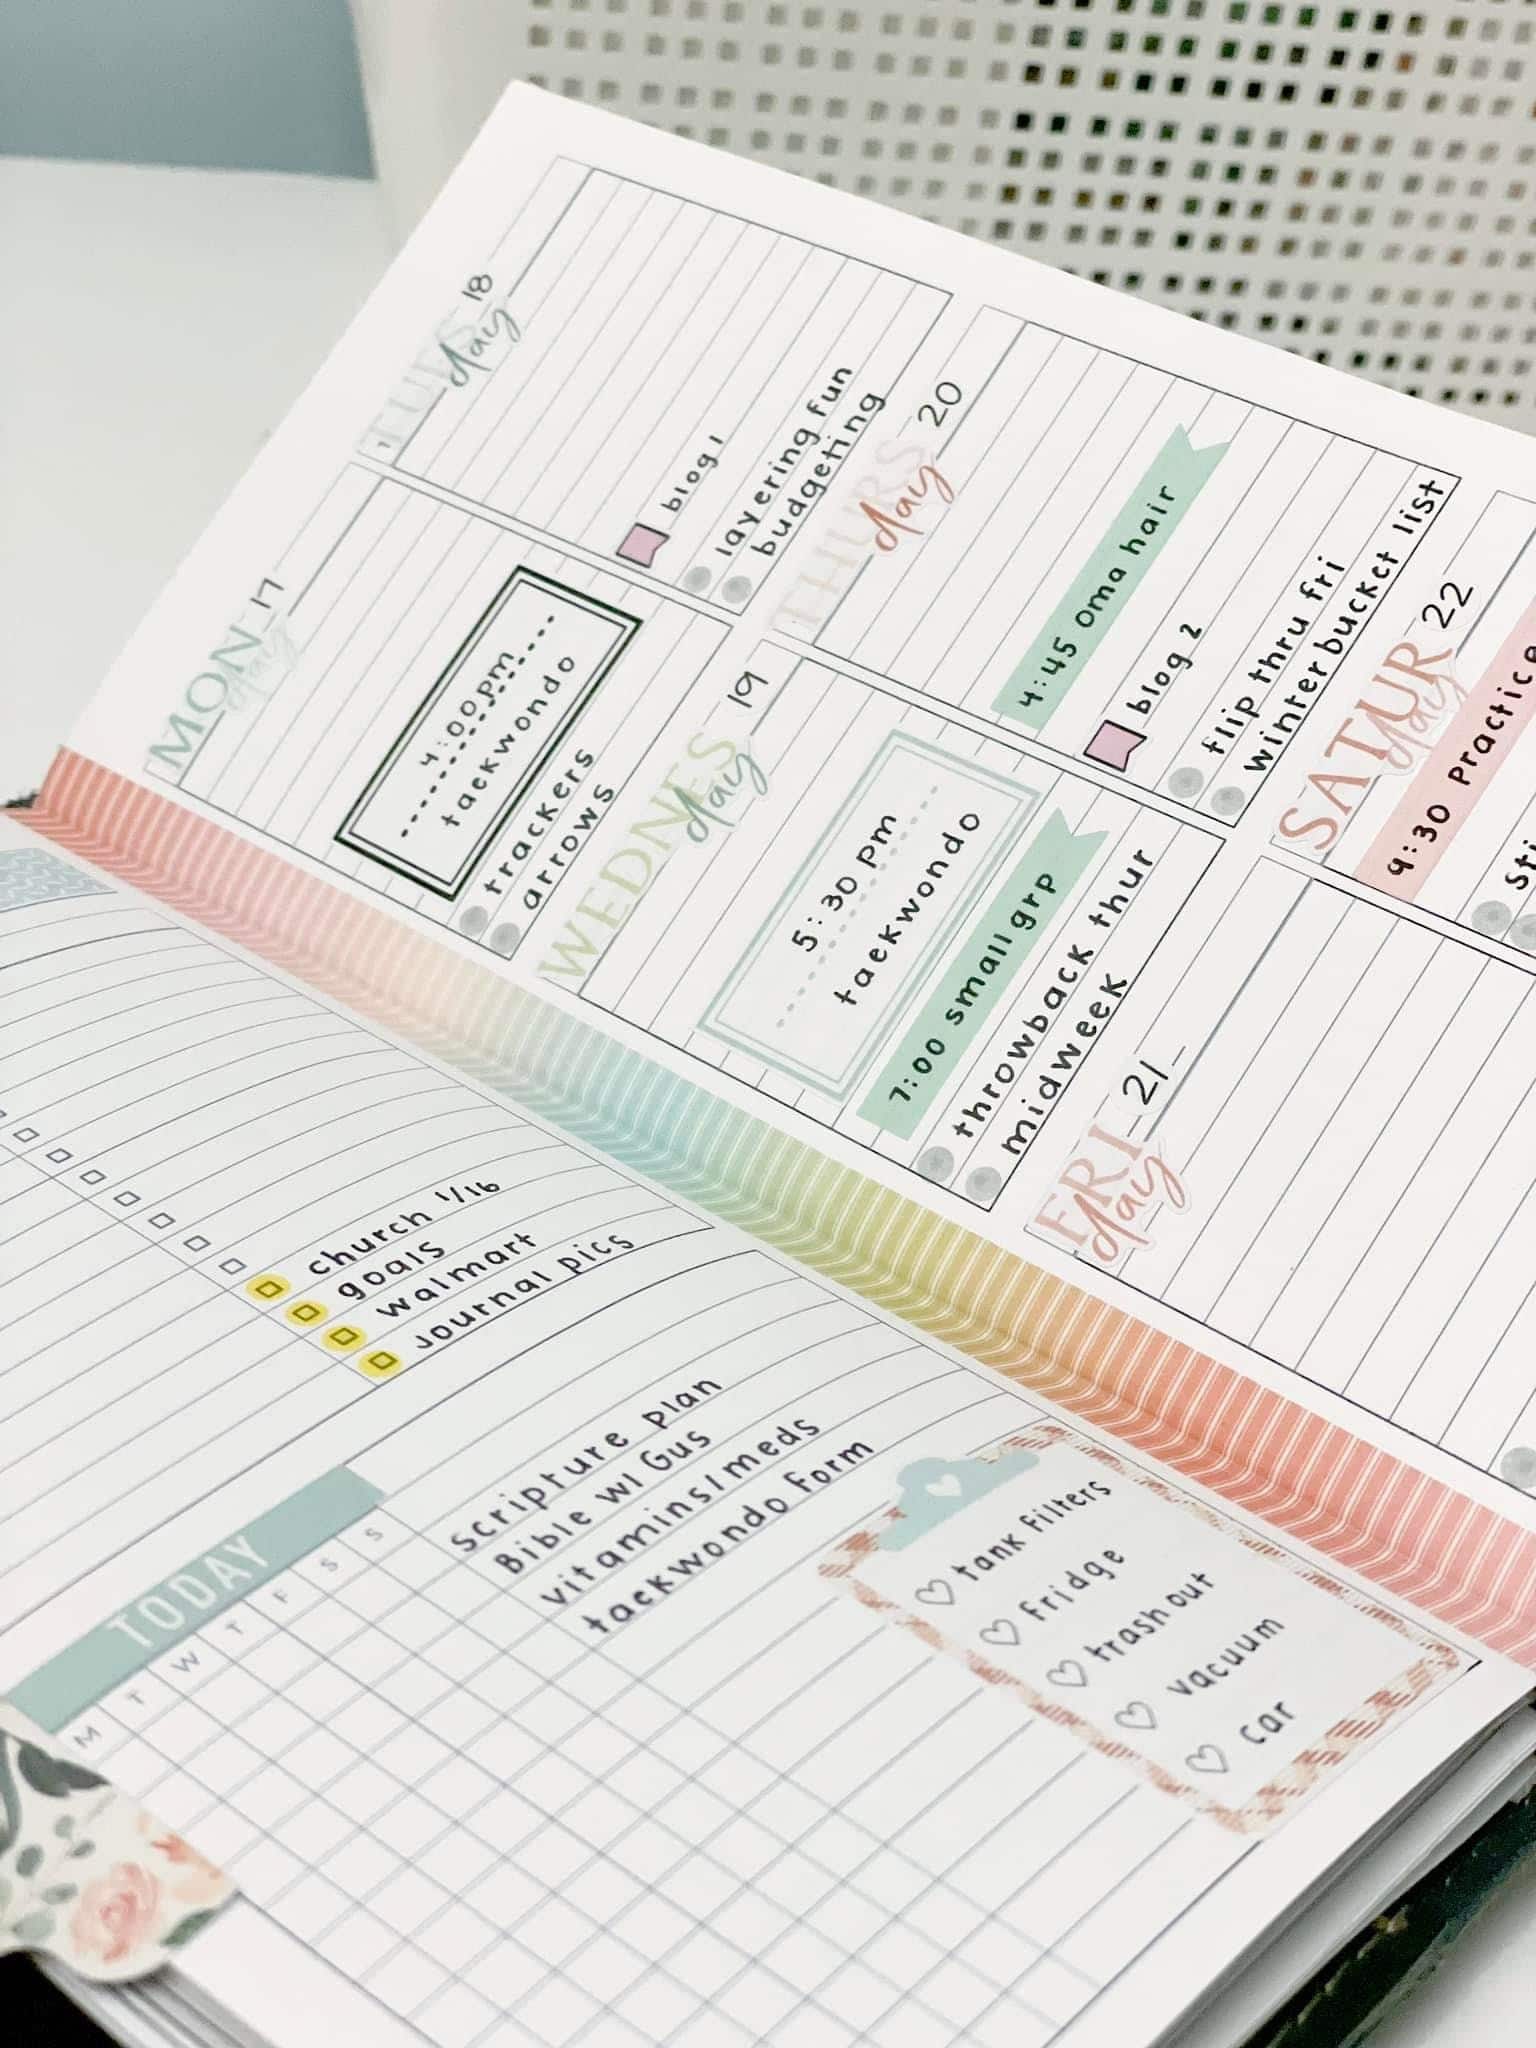 MON day 17
4:00pm
taekwondo
trackers
arrows
TUES day 18
blog 1
layering fun
budgeting
WEDNES day 19
5:30 pm
taekwondo
7:00 small grp
throwback thur
midweek
THURS day 20
4:45 oma hair
blog 2
flip thru fri
winter bucket list
FRI day 21
SATUR day 22
9:30 Practice
church 1/16
goals
walmart
journal pics
TODAY
M T W T F S S
scripture plan
Bible w/ Gus
vitamins/meds
taekwondo form
tank filters
fridge
trash out
vacuum
car